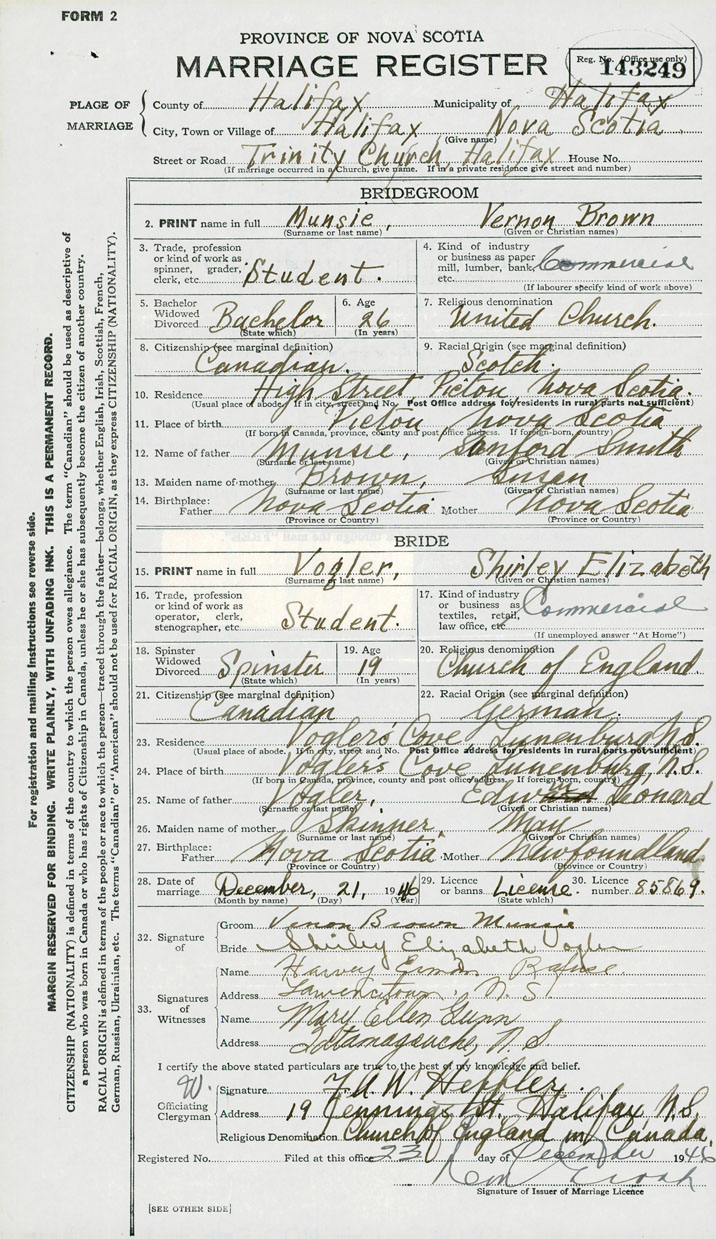 FORM 2
PROVINCE OF NOVA SCOTIA
MARRIAGE REGISTER
Reg. No. (Office use only)
143249
PLACE OF MARRIAGE
County of Halifax Municipality of Halifax
City, Town or Village of Halifax Nova Scotia
(Give name)
Street or Road Trinity Church, Halifax House No.
(If marriage occurred in a Church, give name. If in a private residence give street and number)
BRIDEGROOM
2. PRINT name in full Munsie, Vernon Brown
(Surname or last name) (Given or Christian names)
3. Trade, profession or kind of work as spinner, grader, clerk, etc. Student.
4. Kind of industry or business as paper mill, lumber, bank, etc. Commercial
(If labourer specify kind of work above)
5. Bachelor Widowed Divorced Bachelor
(State which)
6. Age 26
(In years)
7. Religious denomination
United Church.
8. Citizenship (see marginal definition)
Canadian.
9. Racial Origin (see marginal definition)
Scotch.
10. Residence High Street, Pictou, Nova Scotia.
(Usual place of abode. If in city, street and No. Post Office address for residents in rural parts not sufficient)
11. Place of birth Pictou Nova Scotia
(If born in Canada, province, county and post office address. If foreign-born, country)
12. Name of father Munsie, Sanford Smith
(Surname or last name) (Given or Christian names)
13. Maiden name of mother Brown, Susan
(Surname or last name) (Given or Christian names)
14. Birthplace: Father Nova Scotia Mother Nova Scotia
(Province or Country) (Province or Country)
BRIDE
15. PRINT name in full Vogler, Shirley Elizabeth
(Surname or last name) (Given or Christian names)
16. Trade, profession or kind of work as operator, clerk, stenographer, etc Student.
17. Kind of industry or business as textiles, retail, law office, etc Commercial
(If unemployed answer "At Home")
18. Spinster Widowed Divorced Spinster
(State which)
19. Age 19
(In years)
20. Religious denomination
Church of England.
21. Citizenship (see marginal definition)
Canadian
22. Racial Origin (see marginal definition)
German.
23. Residence Vogler's Cove, Lunenburg N.S.
(Usual place of abode. If in city, street and No. Post Office address for residents in rural parts not sufficient)
24. Place of birth Vogler's Cove Lunenburg, N.S.
(If born in Canada, province, county and post office address. If foreign-born, country)
25. Name of father Vogler, Leonard
(Surname or last name) (Given or Christian names)
26. Maiden name of mother Skinner, May
(Surname or last name) (Given or Christian names)
27. Birthplace: Father Nova Scotia Mother Newfoundland.
(Province or Country) (Province or Country)
28. Date of marriage December, 21, 1946
(Month by name) (Day) (Year)
29. License or banns License.
(State which)
30. License number 85869.
32. Signature of
Groom Vernon Brown Munsie
Bride Shirley Elizabeth Vogler
33. Signatures of Witnesses
Name Harvey Rafuse
Address Lawrencetown, N.S.
Name Mary Ellen Gunn
Address Tatamagouche, N.S.
I certify the above stated particulars are true to the best of my knowledge and belief.
W.
Officiating Clergyman
Signature F.A.W. Heffler.
Address 19 Jennings St. Halifax N.S.
Religious Denomination Church of England in Canada.
Registered No. Filed at this office 23 day of December 1946
Signature of Issuer of Marriage Licence
[SEE OTHER SIDE]
For registration and mailing instructions see reverse side.
MARGIN RESERVED FOR BINDING. WRITE PLAINLY, WITH UNFADING INK. THIS IS A PERMANENT RECORD.
CITIZENSHIP (NATIONALITY) is defined in terms of the country to which the person owes allegiance. The term "Canadian" should be used as descriptive of
a person who was born in Canada or who has rights of Citizenship in Canada, unless he or she has subsequently become the citizen of another country.
RACIAL ORIGIN is defined in terms of the people or race to which the person—traced through the father—belongs, whether English, Irish, Scottish, French,
German, Russian, Ukrainian, etc. The terms "Canadian" or "American" should not be used for RACIAL ORIGIN, as they express CITIZENSHIP (NATIONALITY).